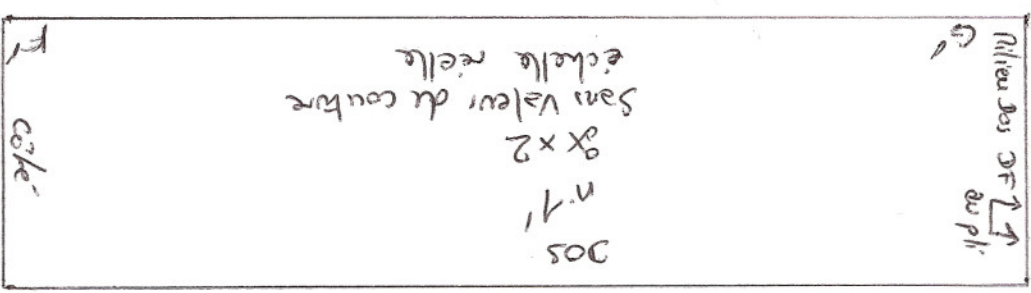 DOS
n°1'
x 2
Sans valeur de couture
échelle réelle
Milieu Dos DF
au pli
G'
côté
F'